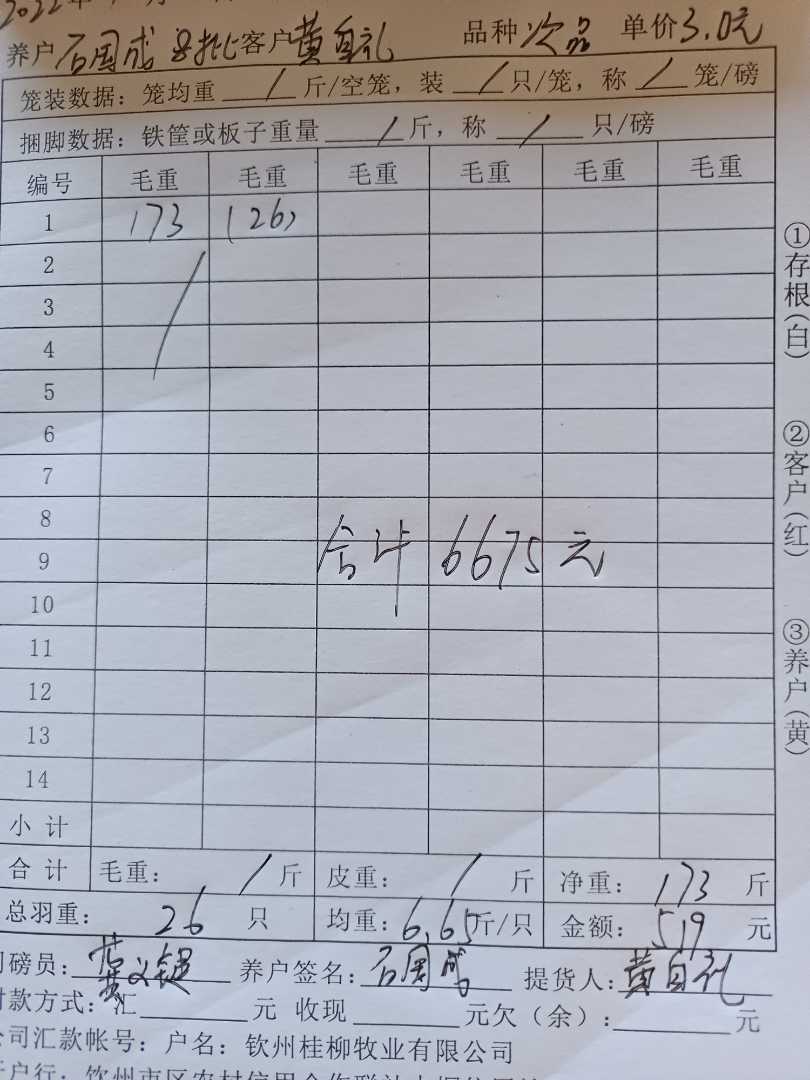 2022年
养户石国成 客户黄自礼 品种次品 单价3.0元
笼装数据：笼均重/斤/空笼，装/只/笼，称/笼/磅
捆脚数据：铁筐或板子重量/斤，称/只/磅
编号 毛重 毛重 毛重 毛重 毛重 毛重
1 173 (26)
2
3
4
5
6
7
8
合计 6675元
9
10
11
12
13
14
小计
合计 毛重：/斤 皮重：/斤 净重：173斤
总羽重：26只 均重：6.65斤/只 金额：519元
磅员： 养户签名：石国成 提货人：黄自礼
款方式：汇 元 收现 元欠（余）： 元
司汇款帐号：户名：钦州桂柳牧业有限公司
户行：钦州市区农村信用合作联社
①存根（白）
②客户（红）
③养户（黄）